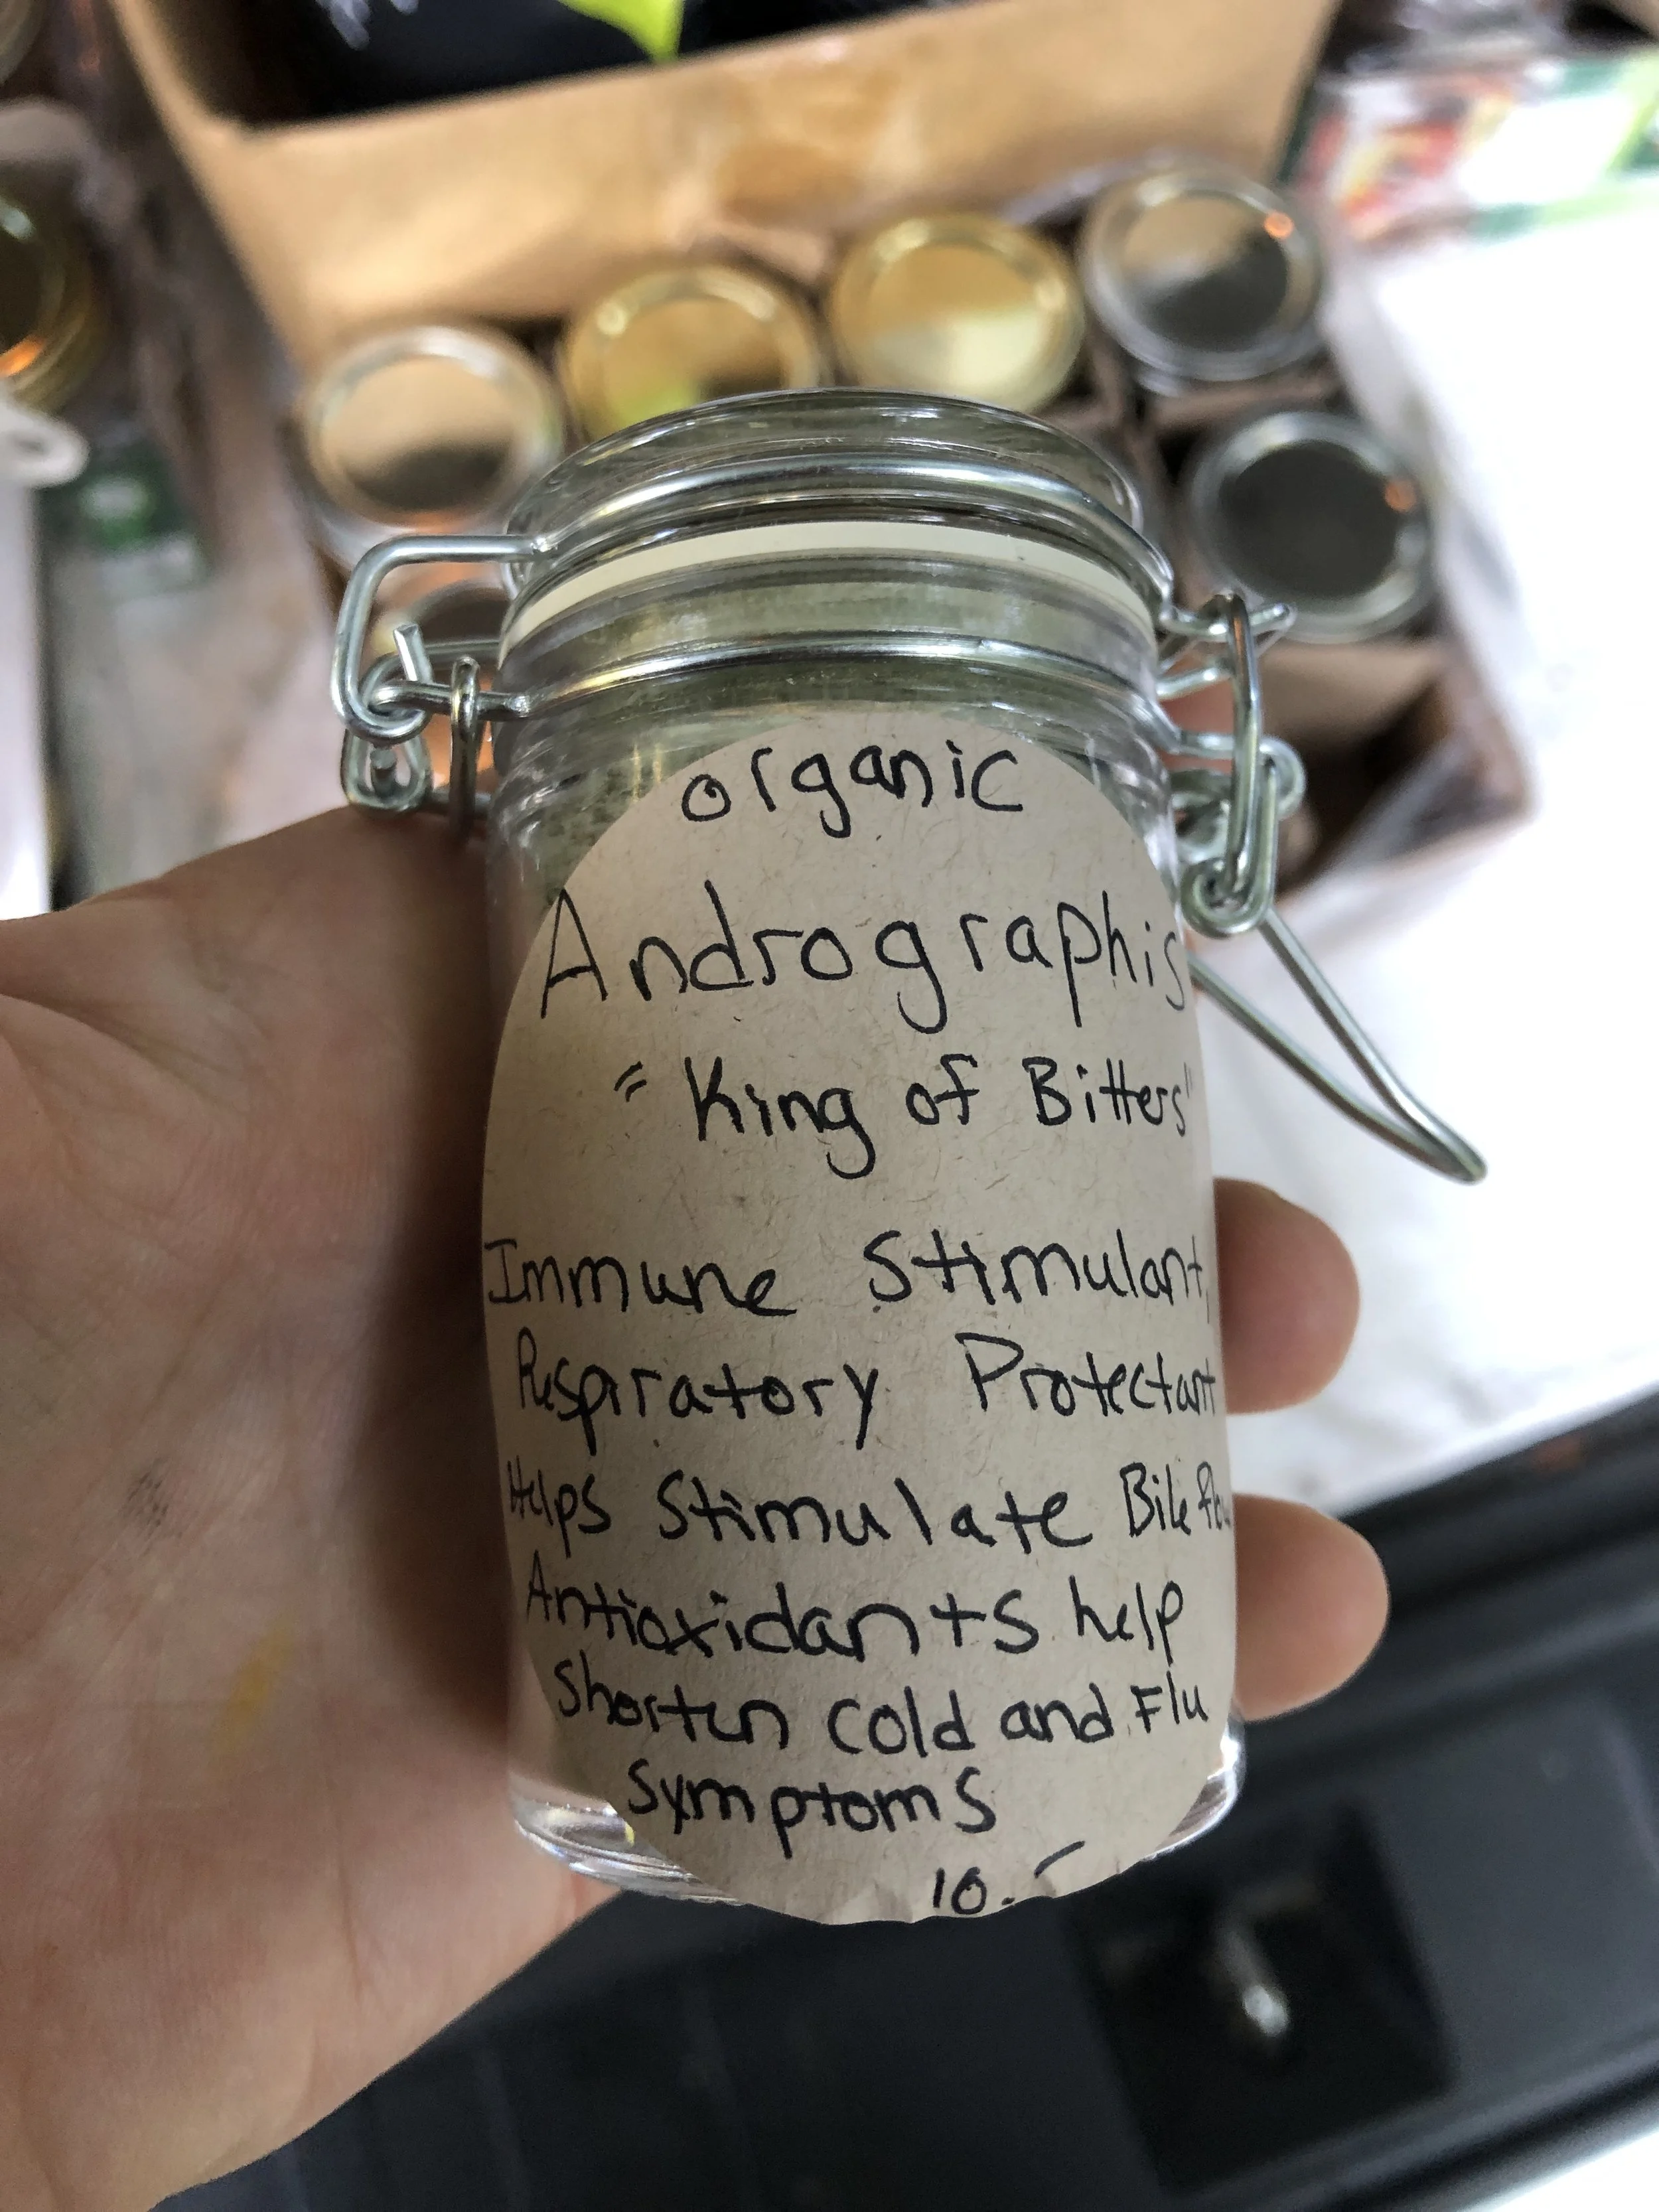 organic
Andrographis
"King of Bitters"
Immune Stimulant,
Respiratory Protectant
Helps Stimulate Bile flow
Antioxidants help
Shorten Cold and Flu
Symptoms
10.-